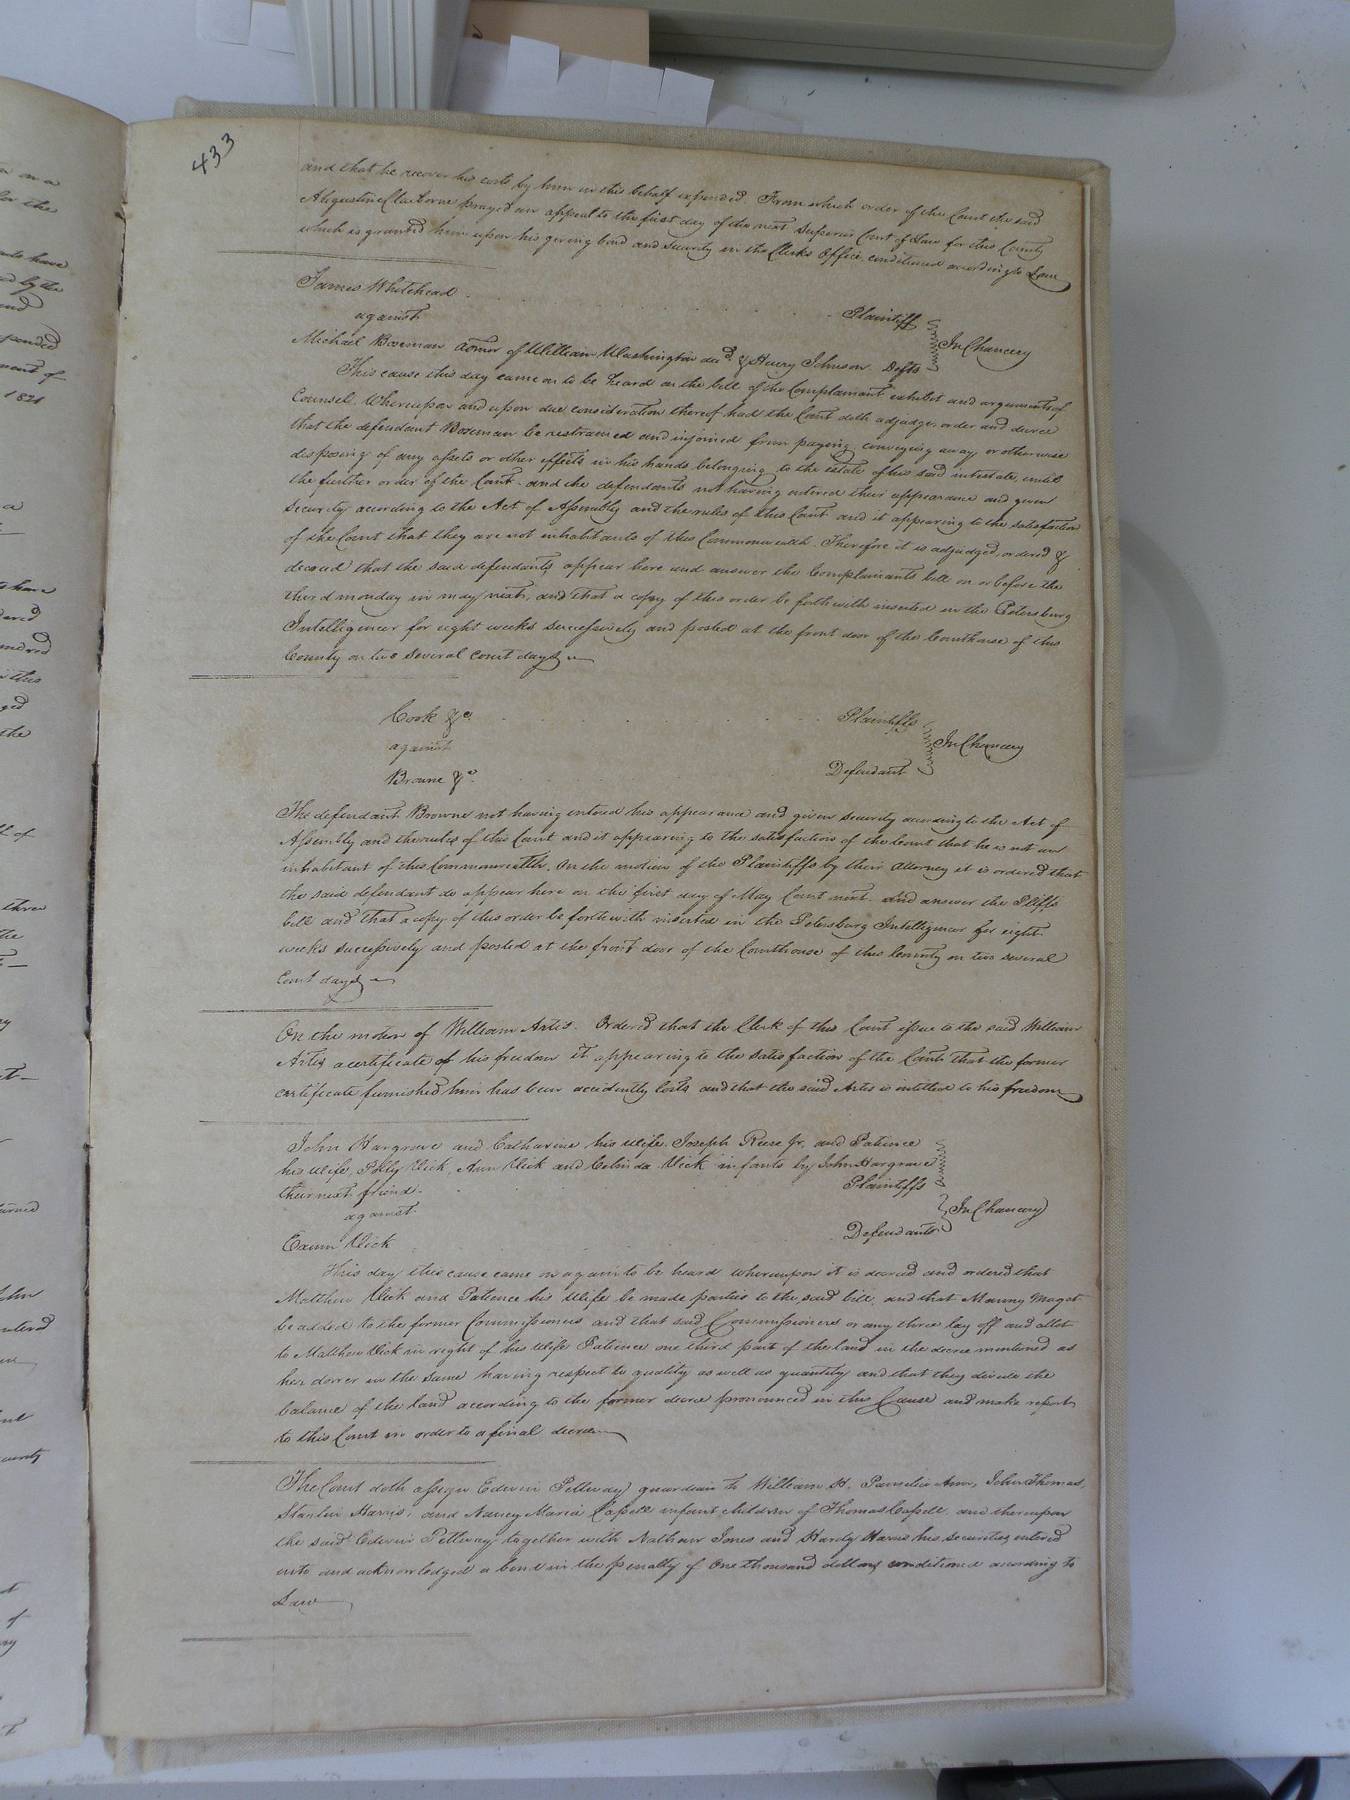 433
and that he recover his costs by him in this behalf expended. From which order of the Court the said
Augustine Claiborne prayed an appeal to the first day of the next Superior Court of Law for this County
which is granted him upon his giving bond and security in the Clerks Office conditioned according to Law
James Whitehead Plaintiff
against In Chancery
Michael Boseman admor of William Washington decd. & Henry Johnson Defts
This cause this day came on to be heard on the bill of the Complainant exhibit and arguments of
Counsel. Whereupon and upon due consideration thereof had the Court doth adjudge order and decree
that the defendant Boseman be restrained and injoined from paying conveying away or otherwise
disposing of any assets or other effects in his hands belonging to the estate of his said intestate, until
the further order of the Court. and the defendants not having entered their appearance and given
security according to the Act of Assembly and the rules of this Court and it appearing to the satisfaction
of the Court that they are not inhabitants of this Commonwealth. Therefore it is adjudged, ordered &
decreed that the said defendants appear here and answer the Complainants bill on or before the
third monday in may next, and that a copy of this order be forthwith inserted in the Petersburg
Intelligencer for eight weeks successively and posted at the front door of the Courthouse of this
County on two several court days
Cook &c. Plaintiffs
against In Chancery
Browne &c. Defendant
The defendant Browne not having entered his appearance and given security according to the Act of
Assembly and the rules of this Court and it appearing to the satisfaction of the Court that he is not an
inhabitant of this Commonwealth, On the motion of the Plaintiffs by their attorney it is ordered that
the said defendant do appear here on the first day of May Court next. and answer the Pltffs
bill and that a copy of this order be forthwith inserted in the Petersburg Intelligencer for eight
weeks successively and posted at the front door of the Courthouse of this County on two several
Court days
On the motion of William Artis. Ordered that the Clerk of this Court issue to the said William
Artis a certificate of his freedom it appearing to the satisfaction of the Court that the former
certificate furnished him has been accidently lost, and that the said Artis is intitled to his freedom
John Hargrave and Catharine his wife. Joseph Reese Jr. and Patience
his wife, Polly Vick, Ann Vick and Celinda Vick infants by John Hargrave
their next friend. Plaintiffs
against In Chancery
Exum Vick Defendants
This day this cause came on again to be heard whereupon it is decreed and ordered that
Matthew Vick and Patience his wife be made parties to the said bill, and that Manny Maget
be added to the former Commissioners and that said Commissioners or any three lay off and allot
to Matthew Vick in right of his wife Patience one third part of the land in the decree mentioned as
her dower in the same having respect to quality as well as quantity and that they divide the
balance of the land according to the former decree pronounced in this Cause and make report
to this Court in order to a final decree
The Court doth assign Edwin Pettway guardian to William H. Ann, John Thomas,
Harris, and Nancy Maria Capell infant children of Thomas Capell and thereupon
the said Edwin Pettway together with Jones and Hardy Harris his securities entered
into and acknowledged a bond in the penalty of One thousand dollars conditioned according to
Law